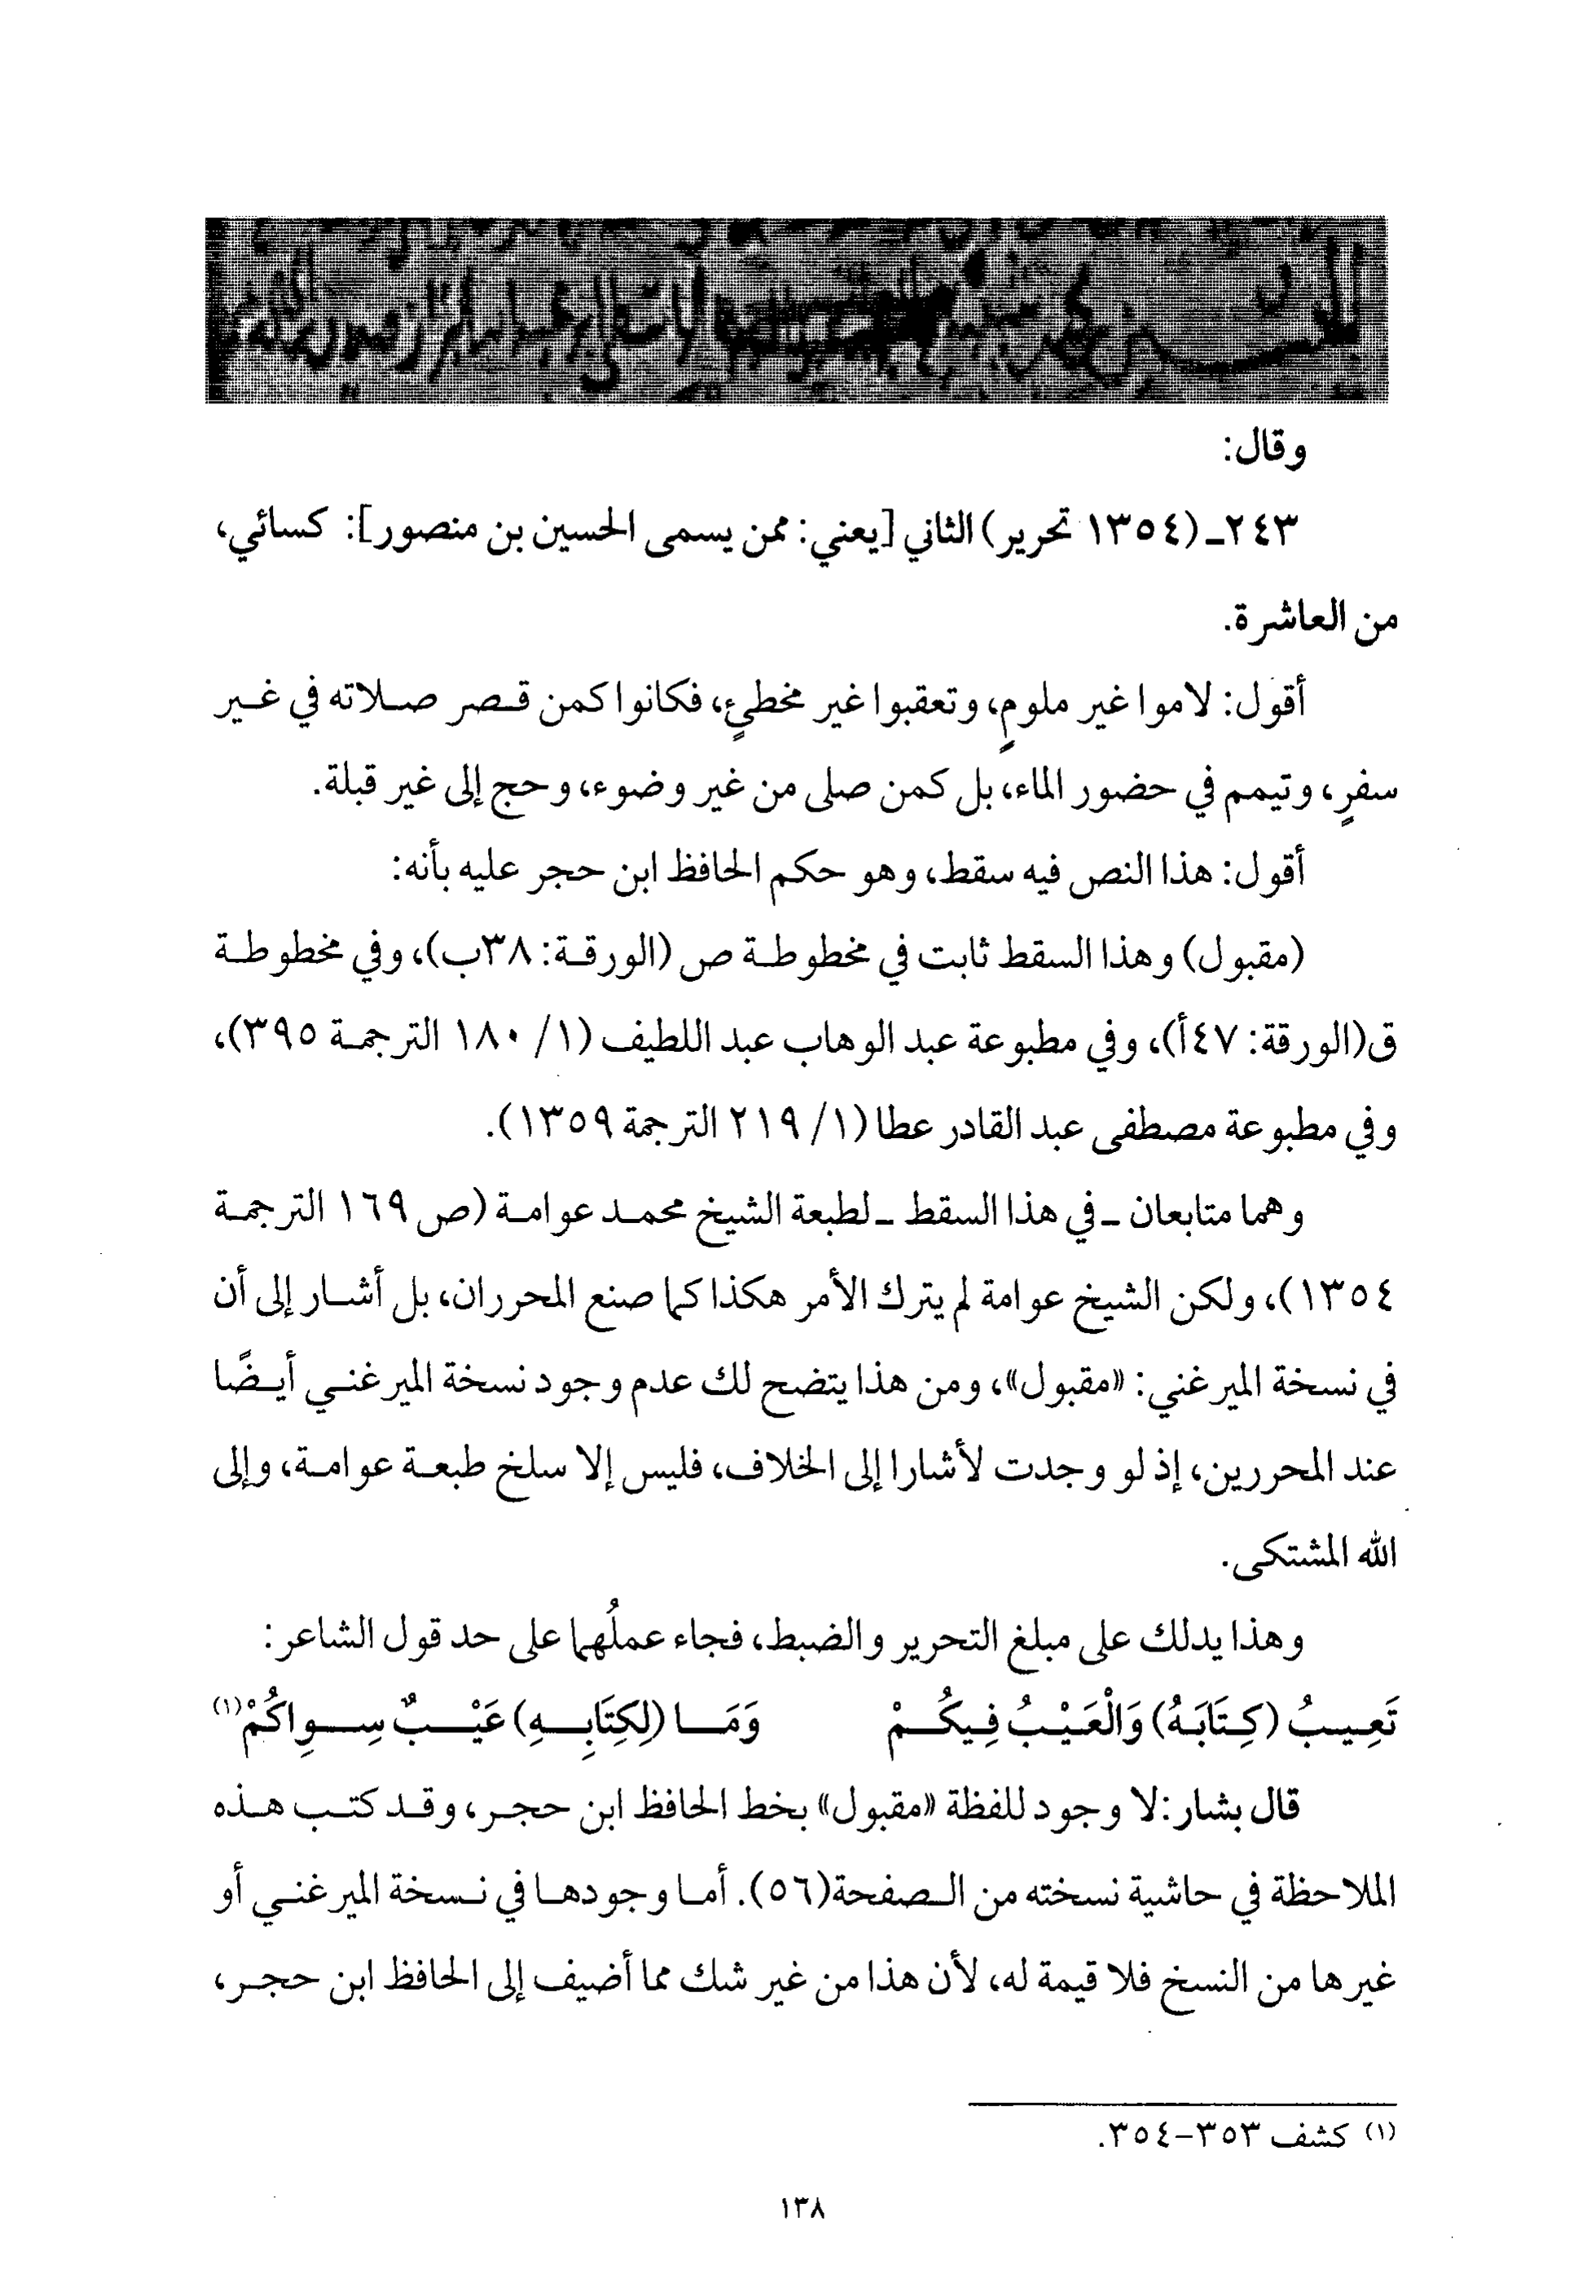 وقال:
٢٤٣ـ (١٣٥٤ تحرير) الثاني [يعني: ممن يسمى الحسين بن منصور]: كسائي،
من العاشرة.
أقول: لاموا غير ملومٍ، وتعقبوا غير مخطيءٍ، فكانوا كمن قصر صلاته في غير
سفرٍ، وتيمم في حضور الماء، بل كمن صلى من غير وضوء، وحج إلى غير قبلة.
أقول: هذا النص فيه سقط، وهو حكم الحافظ ابن حجر عليه بأنه:
(مقبول) وهذا السقط ثابت في مخطوطة ص (الورقة: ٣٨ب)، وفي مخطوطة
ق(الورقة: ٤٧أ)، وفي مطبوعة عبد الوهاب عبد اللطيف (١/ ١٨٠ الترجمة ٣٩٥)،
وفي مطبوعة مصطفى عبد القادر عطا (١/ ٢١٩ الترجمة ١٣٥٩).
وهما متابعان ـ في هذا السقط ـ لطبعة الشيخ محمد عوامة (ص ١٦٩ الترجمة
١٣٥٤)، ولكن الشيخ عوامة لم يترك الأمر هكذا كما صنع المحرران، بل أشار إلى أن
في نسخة الميرغني: «مقبول»، ومن هذا يتضح لك عدم وجود نسخة الميرغني أيضًا
عند المحررين، إذ لو وجدت لأشارا إلى الخلاف، فليس إلا سلخ طبعة عوامة، وإلى
الله المشتكى.
وهذا يدلك على مبلغ التحرير والضبط، فجاء عملُهما على حد قول الشاعر:
تَعِيبُ (كِتَابَهُ) وَالْعَيْبُ فِيكُمْ وَمَا (لِكِتَابِهِ) عَيْبٌ سِواكُمْ(١)
قال بشار: لا وجود للفظة «مقبول» بخط الحافظ ابن حجر، وقد كتب هذه
الملاحظة في حاشية نسخته من الصفحة(٥٦). أما وجودها في نسخة الميرغني أو
غيرها من النسخ فلا قيمة له، لأن هذا من غير شك مما أضيف إلى الحافظ ابن حجر،
(١) كشف ٣٥٣-٣٥٤.
١٣٨